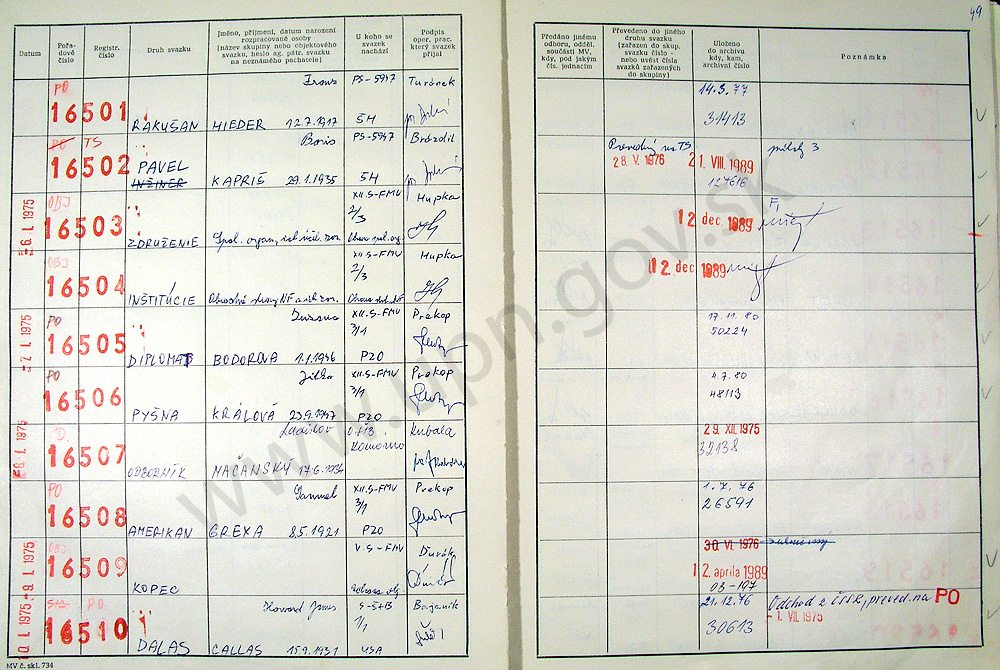 49
Datum
Pořadové číslo
Registr. číslo
Druh svazku
Jméno, příjmení, datum narození
rozpracované osoby
(název skupiny nebo objektového
svazku, heslo ag. pátr. svazku
na neznámého pachatele)
U koho se
svazek
nachází
Podpis
oper. prac.
který svazek
přijal
Předáno jinému
odboru, odděl.
součásti MV,
kdy, pod jakým
čís. jednacím
Převedeno do jiného
druhu svazku
(zařazen do skup.
svazku číslo -
nebo uvést čísla
svazků zařazených
do skupiny)
Uloženo
do archivu
kdy, kam,
archivní číslo
Poznámka
PO Frans PS-5947 Turánek 14.3.77
16501 RAKUŠAN HIEDER 12.7.1917 5H 31413
PO TS Boris PS-5947 Brázdil Prevedený na TS
16502 PAVEL 28. V. 1976 1. VIII. 1989
INŽINER KAPRIŠ 29.1.1935 5H 127616
6. I. 1975
OBJ XII.S-FMV Hupka
16503 2/3 12 dec. 1989
ZDRUŽENIE
OBJ XII.S-FMV Hupka
16504 2/3 12. dec. 1989
INŠTITÚCIE
7. I. 1975
PO Zuzana XII.S-FMV Prekop 17.11.80
16505 3/1 50224
DIPLOMAT BODOROVA 1.1.1946 P20
PO Jitka XII.S-FMV Prekop 4.7.80
16506 3/1 48113
PYŠNA KRÁLOVÁ 23.9.1947 P20
8. I. 1975
D. Ladislav Kubala 29. XII. 1975
16507 Komárno 32138
ODBORNÍK MAČANSKÝ 17.6.1934
PO Samuel XII.S-FMV Prekop 1.7.76
16508 3/1 26591
AMERIKAN GREXA 8.5.1921 P20
9. I. 1975
OBJ V.S-FMV Ďurák 30. VI. 1976
16509 12. apríla 1989
KOPEC 03-197
10. I. 1975
PO Howard Jones S-ŠtB Bajaník 21.12.76 Odchod z ČSSR, preved. na PO
16510 1/1 30613 - 1. VII. 1975
DALAS CALLAS 15.9.1931 USA
MV č. skl. 734
www.upn.gov.sk